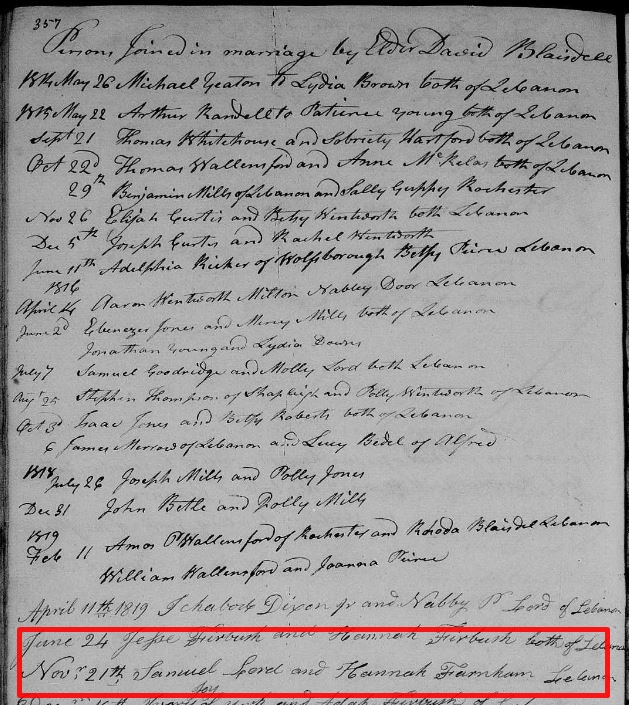 357
Persons Joined in marriage by Elder David Blaisdell
1814 May 26 Michael Yeaton to Lydia Brown both of Lebanon
1815 May 22 Arthur Randell to Patience young both of Lebanon
Sept 21 Thomas Whitehouse and Sobriety Hartford both of Lebanon
Oct 22d Thomas Wallensford and Anne McKelas both of Lebanon
29th Benjamin Mills of Lebanon and Sally Guppy Rochester
Nov 26 Elijah Curtis and Betsy Wentworth both Lebanon
Dec 5th Joseph Curtis and Rachel Wentworth
June 11th Adelphia Ricker of Wolfsborough Betsy Peirce Lebanon
1816
April 14 Aaron Wentworth Milton Nabby Door Lebanon
June 2d Ebenezer Jones and Mercy Mills both of Lebanon
Jonathan Young and Lydia Downs
July 7 Samuel Goodridge and Molly Lord both Lebanon
Augt 25 Stephen Thompson of Shapleigh and Polly Wentworth of Lebanon
Oct 3d Isaac Jones and Betsy Roberts both of Lebanon
6 James Merrow of Lebanon and Lucy Bedel of Alfred
1818
July 26 Joseph Mills and Polly Jones
Dec 31 John Betle and Polly Mills
1819
Feb 11 Amos P Wallensford of Rochester and Rhoda Blaisdel Lebanon
William Wallensford and Joanna Peirce
April 11th 1819 Ichabod Dixon Jr and Nabby P Lord of Lebanon
June 24 Jesse Firbush and Hannah Firbush both of Lebanon
Novr 21th Samuel Lord and Hannah Farnham Lebanon